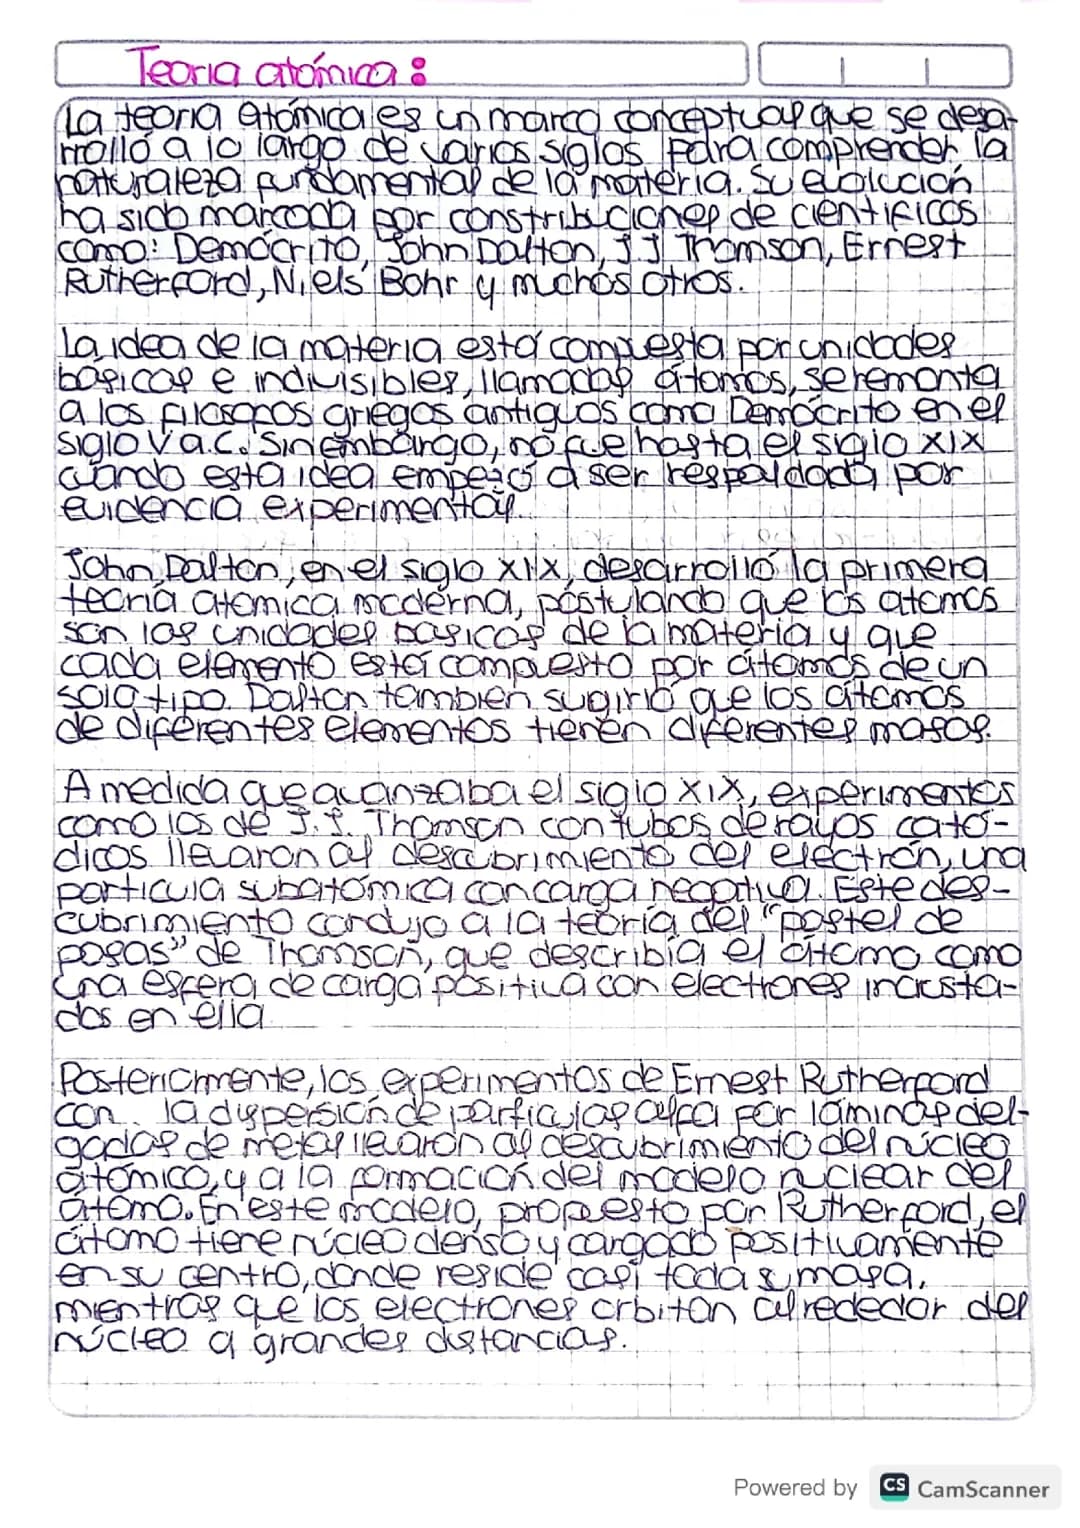 Teoria atómica:
La teoria atómica es un marco conceptual que se desa-
rrolló a lo largo de varios siglos para comprender la
naturaleza fundamental de la materia. Su evolución
ha sido marcada por constribuciones de cientificos
como: Demócrito, John Dalton, J J Thomson, Ernest
Rutherford, Niels Bohr y muchos otros.
La idea de la materia está compuesta por unidades
básicas e indivisibles, llamadas átomos, se remonta
a los filosofos griegos antiguos como Demócrito en el
siglo V a.C. Sin embargo, no fue hasta el siglo XIX
cuando esta idea empezó a ser respaldada por
evidencia experimental.
John Dalton, en el siglo XIX, desarrolló la primera
teoria atomica moderna, postulando que los atomos
son las unidades basicas de la materia y que
cada elemento está compuesto por átomos de un
solo tipo. Dalton tambien sugirió que los átomos
de diferentes elementos tienen diferentes masas.
A medida que avanzaba el siglo XIX, experimentos
como los de J.J. Thomson con tubos de rayos cató-
dicos llevaron al descubrimiento del electrón, una
particula subatómica con carga negativa. Este des-
cubrimiento condujo a la teoría del "pastel de
pasas" de Thomson, que describía el átomo como
una esfera de carga positiva con electrones incrusta-
dos en ella
Posteriormente, los experimentos de Ernest Rutherford
con la dispersión de particulas alfa por láminas del-
gadas de metal llevaron al descubrimiento del núcleo
atómico, y a la formación del modelo nuclear del
átomo. En este modelo, propuesto por Rutherford, el
átomo tiene núcleo denso y cargado positivamente
en su centro, donde reside casi toda su masa,
mientras que los electrones orbitan alrededor del
núcleo a grandes distancias.
Powered by CS CamScanner